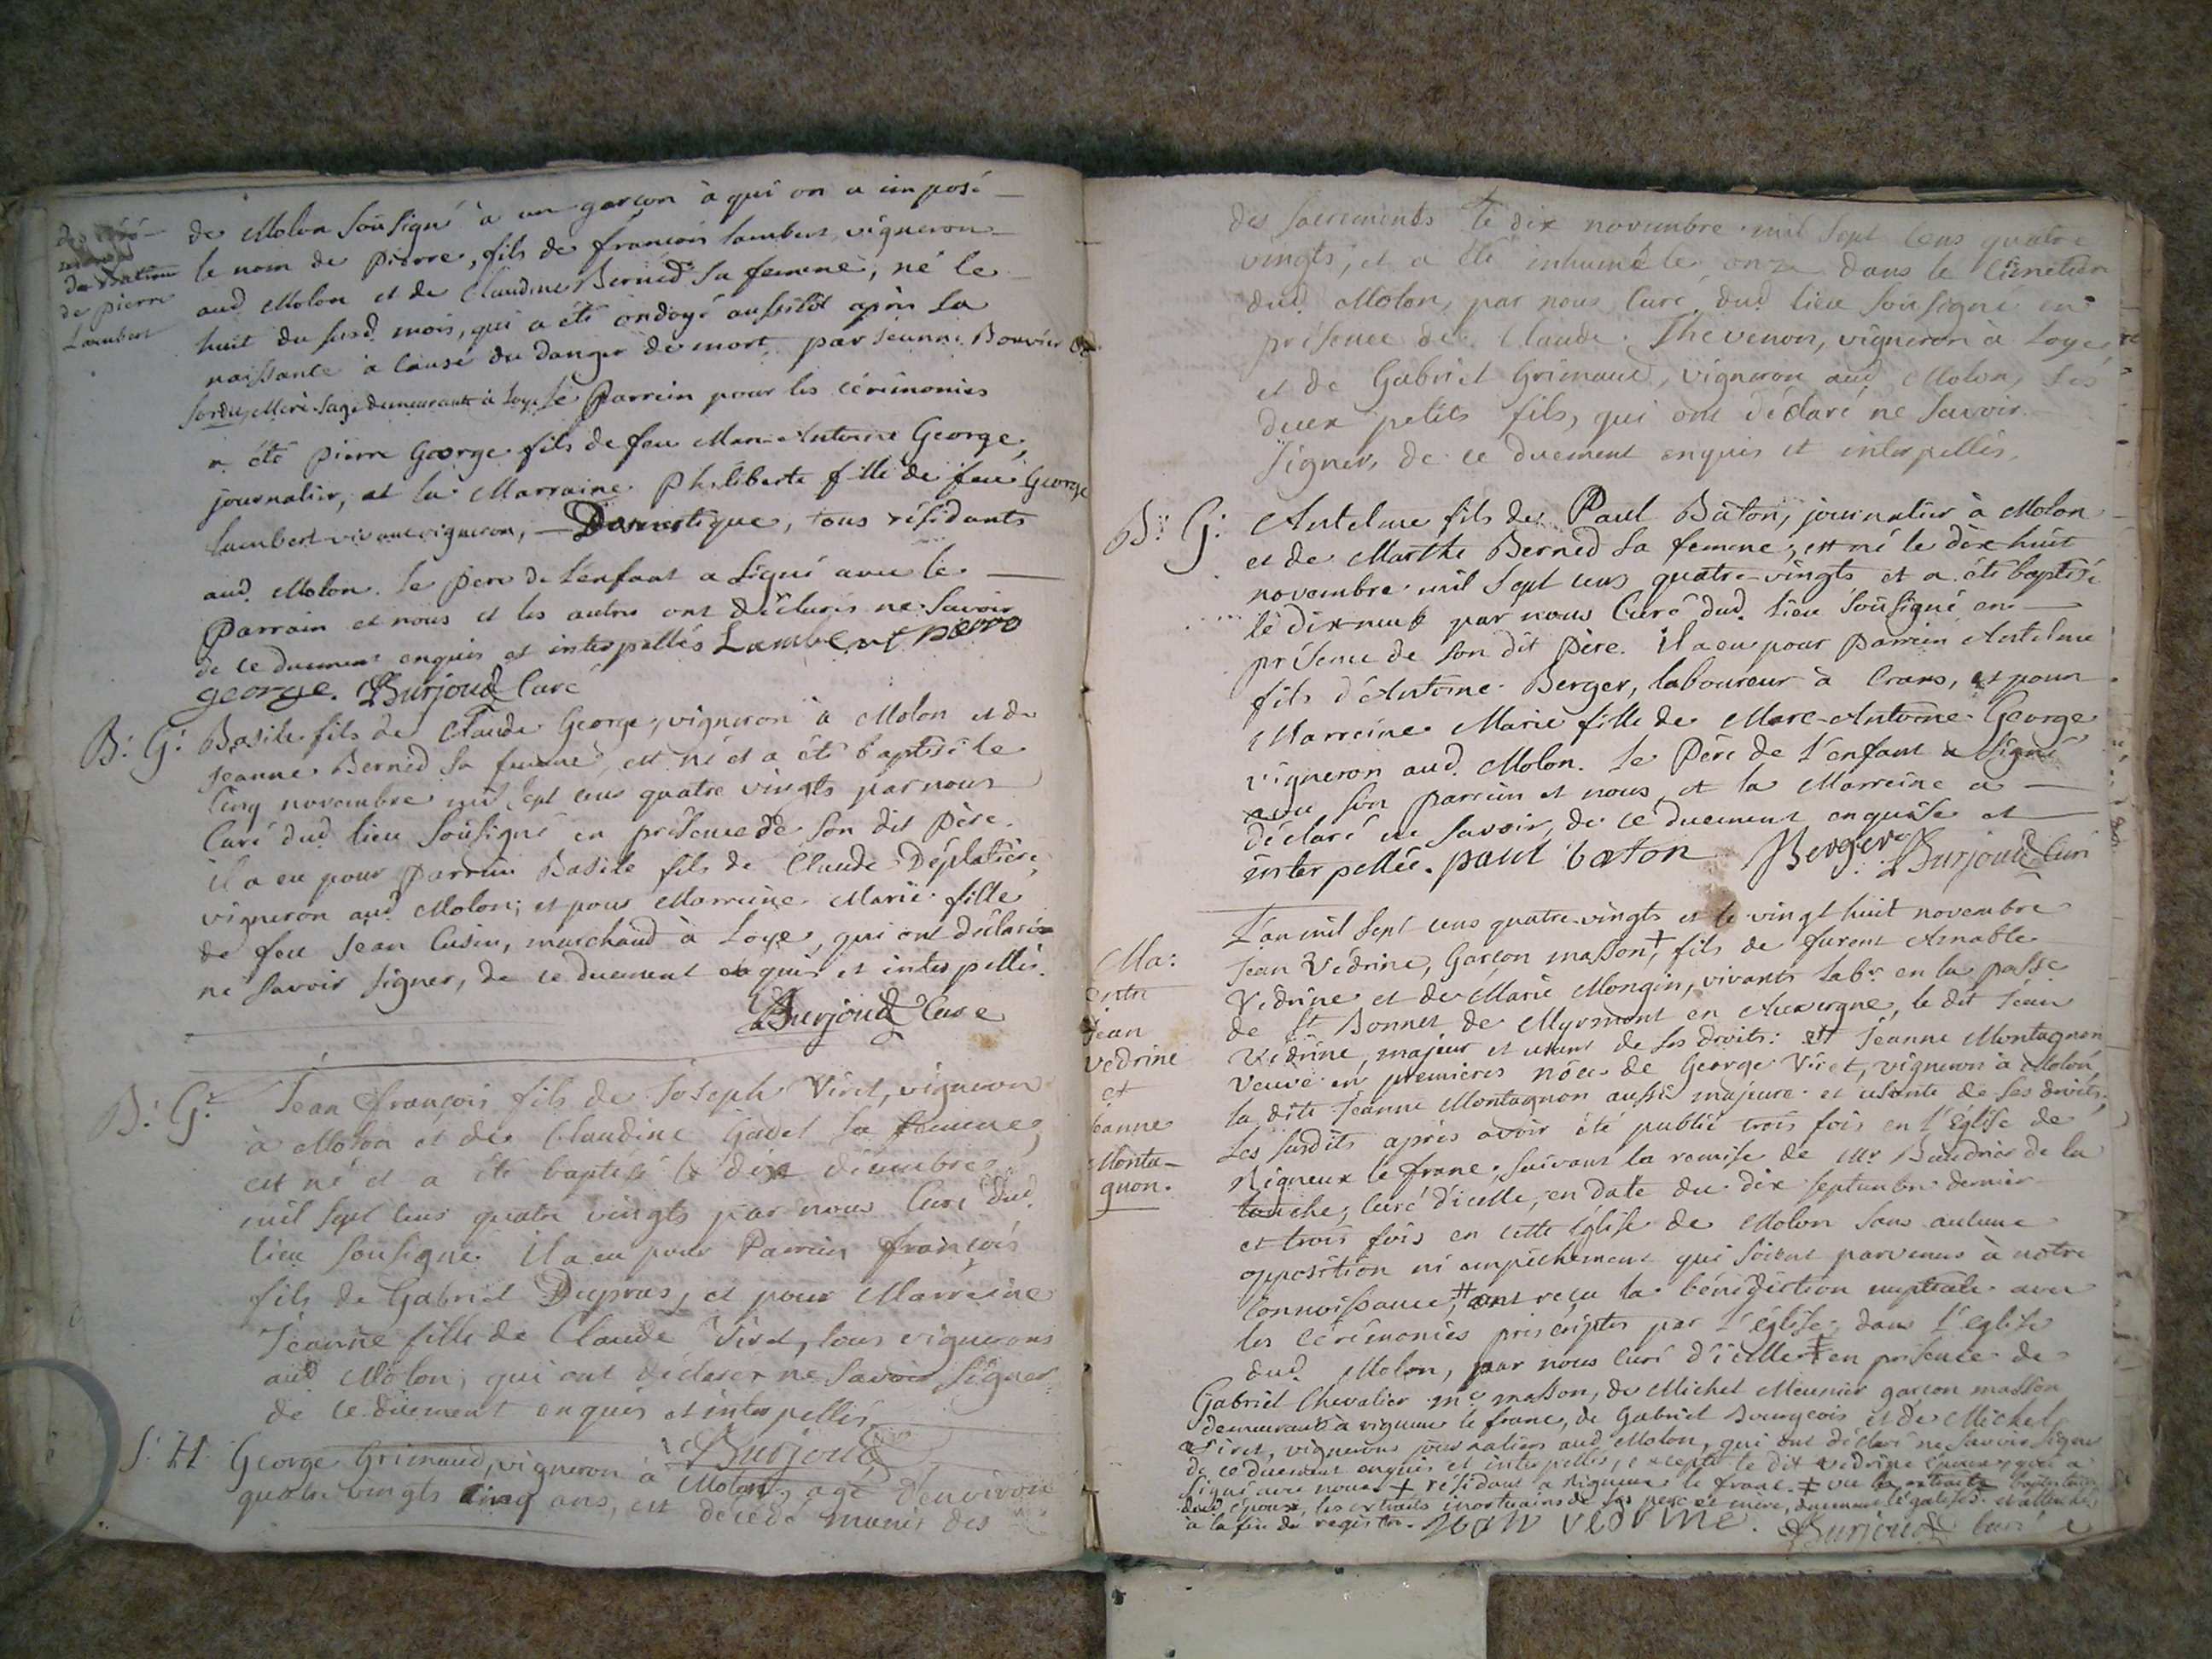 de Molon soûsigné à un garçon à qui on a imposé
le nom de pierre, fils de françois Lambert vigneron
aud Molon et de Claudine Berned sa femme, né le
huit du susd. mois, qui a été ondoyé aussitôt après sa
naissance à cause du danger de mort par Jeanne Bouvier
Mere-Sage demeurante à Loye Le Parrein pour les cérémonies
a été pierre George fils de feu Marc-Antoine George,
journalier, et la Marraine Philiberte fille de feu George
Lambert vivant vigneron, Domestique, tous résidants
aud. Molon. Le pere de l'enfant a signé avec le
Parrain et nous et les autres ont déclarés ne savoir
de ce duement enquis et interpellés Lambert pierre
george. Burjoud Curé
des céré-
de Batême
de pierre
Lambert
B: G: Basile fils de Claude George, vigneron à Molon et de
Jeanne Berned sa femme, est né et a été baptisé le
cinq novembre mil sept cens quatre vingts par nous
Curé dud. lieu soûsigné en présence de son dit Père.
il a eu pour Parrein Basile fils de Claude Déplatière,
vigneron aud Molon; et pour Marreine Marie fille
de feu Jean Cusin, marchand à Loye, qui ont déclarés
ne savoir signer, de ce duement enquis et interpellés.
Burjoud Curé
B: G: Jean françois fils de Joseph Viret, vigneron
à Molon et de Claudine Gadet sa femme,
est né et a été baptisé le dix décembre
mil sept cens quatre vingts par nous Curé dud.
lieu sousigné. Il a eu pour Parrein françois
fils de Gabriel Dupras, et pour Marreine
Jeanne fille de Claude Viret, tous vignerons
aud Molon, qui ont déclarer ne savoir signer
de ce duement enquis et interpellés.
Burjoud
S: H. George Grimaud, vigneron à Molon, agé d'environ
quatre vingts cinq ans, est décédé munis des
des sacrements le dix novembre mil sept cens quatre
vingts, et a été inhumé le onze dans le Cimetière
dud. Molon, par nous Curé dud lieu soûsigné en
présence de Claude Thevenon, vigneron à Loye,
et de Gabriel Grimaud, vigneron aud Molon, ses
deux petits fils, qui ont déclaré ne savoir
signer, de ce duement enquis et interpellés,
B: G: Antelme fils de Paul Bâton, journalier à Molon
et de Marthe Berned sa femme, est né le dix huit
novembre mil sept cens quatre-vingts et a été baptisé
le dix neuf par nous Curé dud. lieu soûsigné en
présence de son dit père. il a eu pour parrein Antelme
fils d'Antoine Berger, laboureur à Crans, et pour
Marreine Marie fille de Marc-Antoine George
vigneron aud. Molon. Le Père de l'enfant a signé
avec son parrein et nous, et la Marreine a
déclaré ne savoir, de ce duement enquise et
interpellée. paul baton Berger Burjoud Curé
Ma:
entre
Jean
vedrine
et
Jeanne
Monta-
gnon.
L'an mil sept cens quatre-vingts et le vingt huit novembre
Jean Vedrine, Garçon masson+, fils de furent Amable
Vedrine et de Marie Mongin, vivants labr en la passe
de St Bonnet de Myrmont en Auvergne, le dit Jean
Vedrine, majeur et usant de ses droits: et Jeanne Montagnon
veuve en premieres nôces de George Viret, vigneron à Molon,
la dite Jeanne Montagnon aussi majeure et usante de ses droits,
Les susdits après avoir été publié trois fois en l'Église de
Rigneux le franc, suivant la remise de Mr Baudrier de la
touche, curé d'icelle, en date du dix septembre dernier
et trois fois en cette Église de Molon sans aucune
opposition ni empêchement qui soient parvenus à notre
Connoissance,# ont reçu la bénédiction nuptiale avec
les Cérémonies prescriptes par l'église, dans l'église
dud Molon, par nous Curé d'icelle ‡ en présence de
Gabriel Chevalier me masson, de Michel Meunier garçon masson
demeurants à rigneux le franc, de Gabriel Bourgeois et de Michel
Viret, vignerons journaliers aud Molon, qui ont déclaré ne savoir signer
de ce duement enquis et interpellés, excepté le dit vedrine époux, qui a
signé avec nous. + résidant a Rigneux le franc. ‡ vu les extraits baptistaires
dud époux, les extraits mortuaires de ses pere et mère, duement légalisés et attachés
à la fin du registre. Jean vedrine. Burjoud Curé